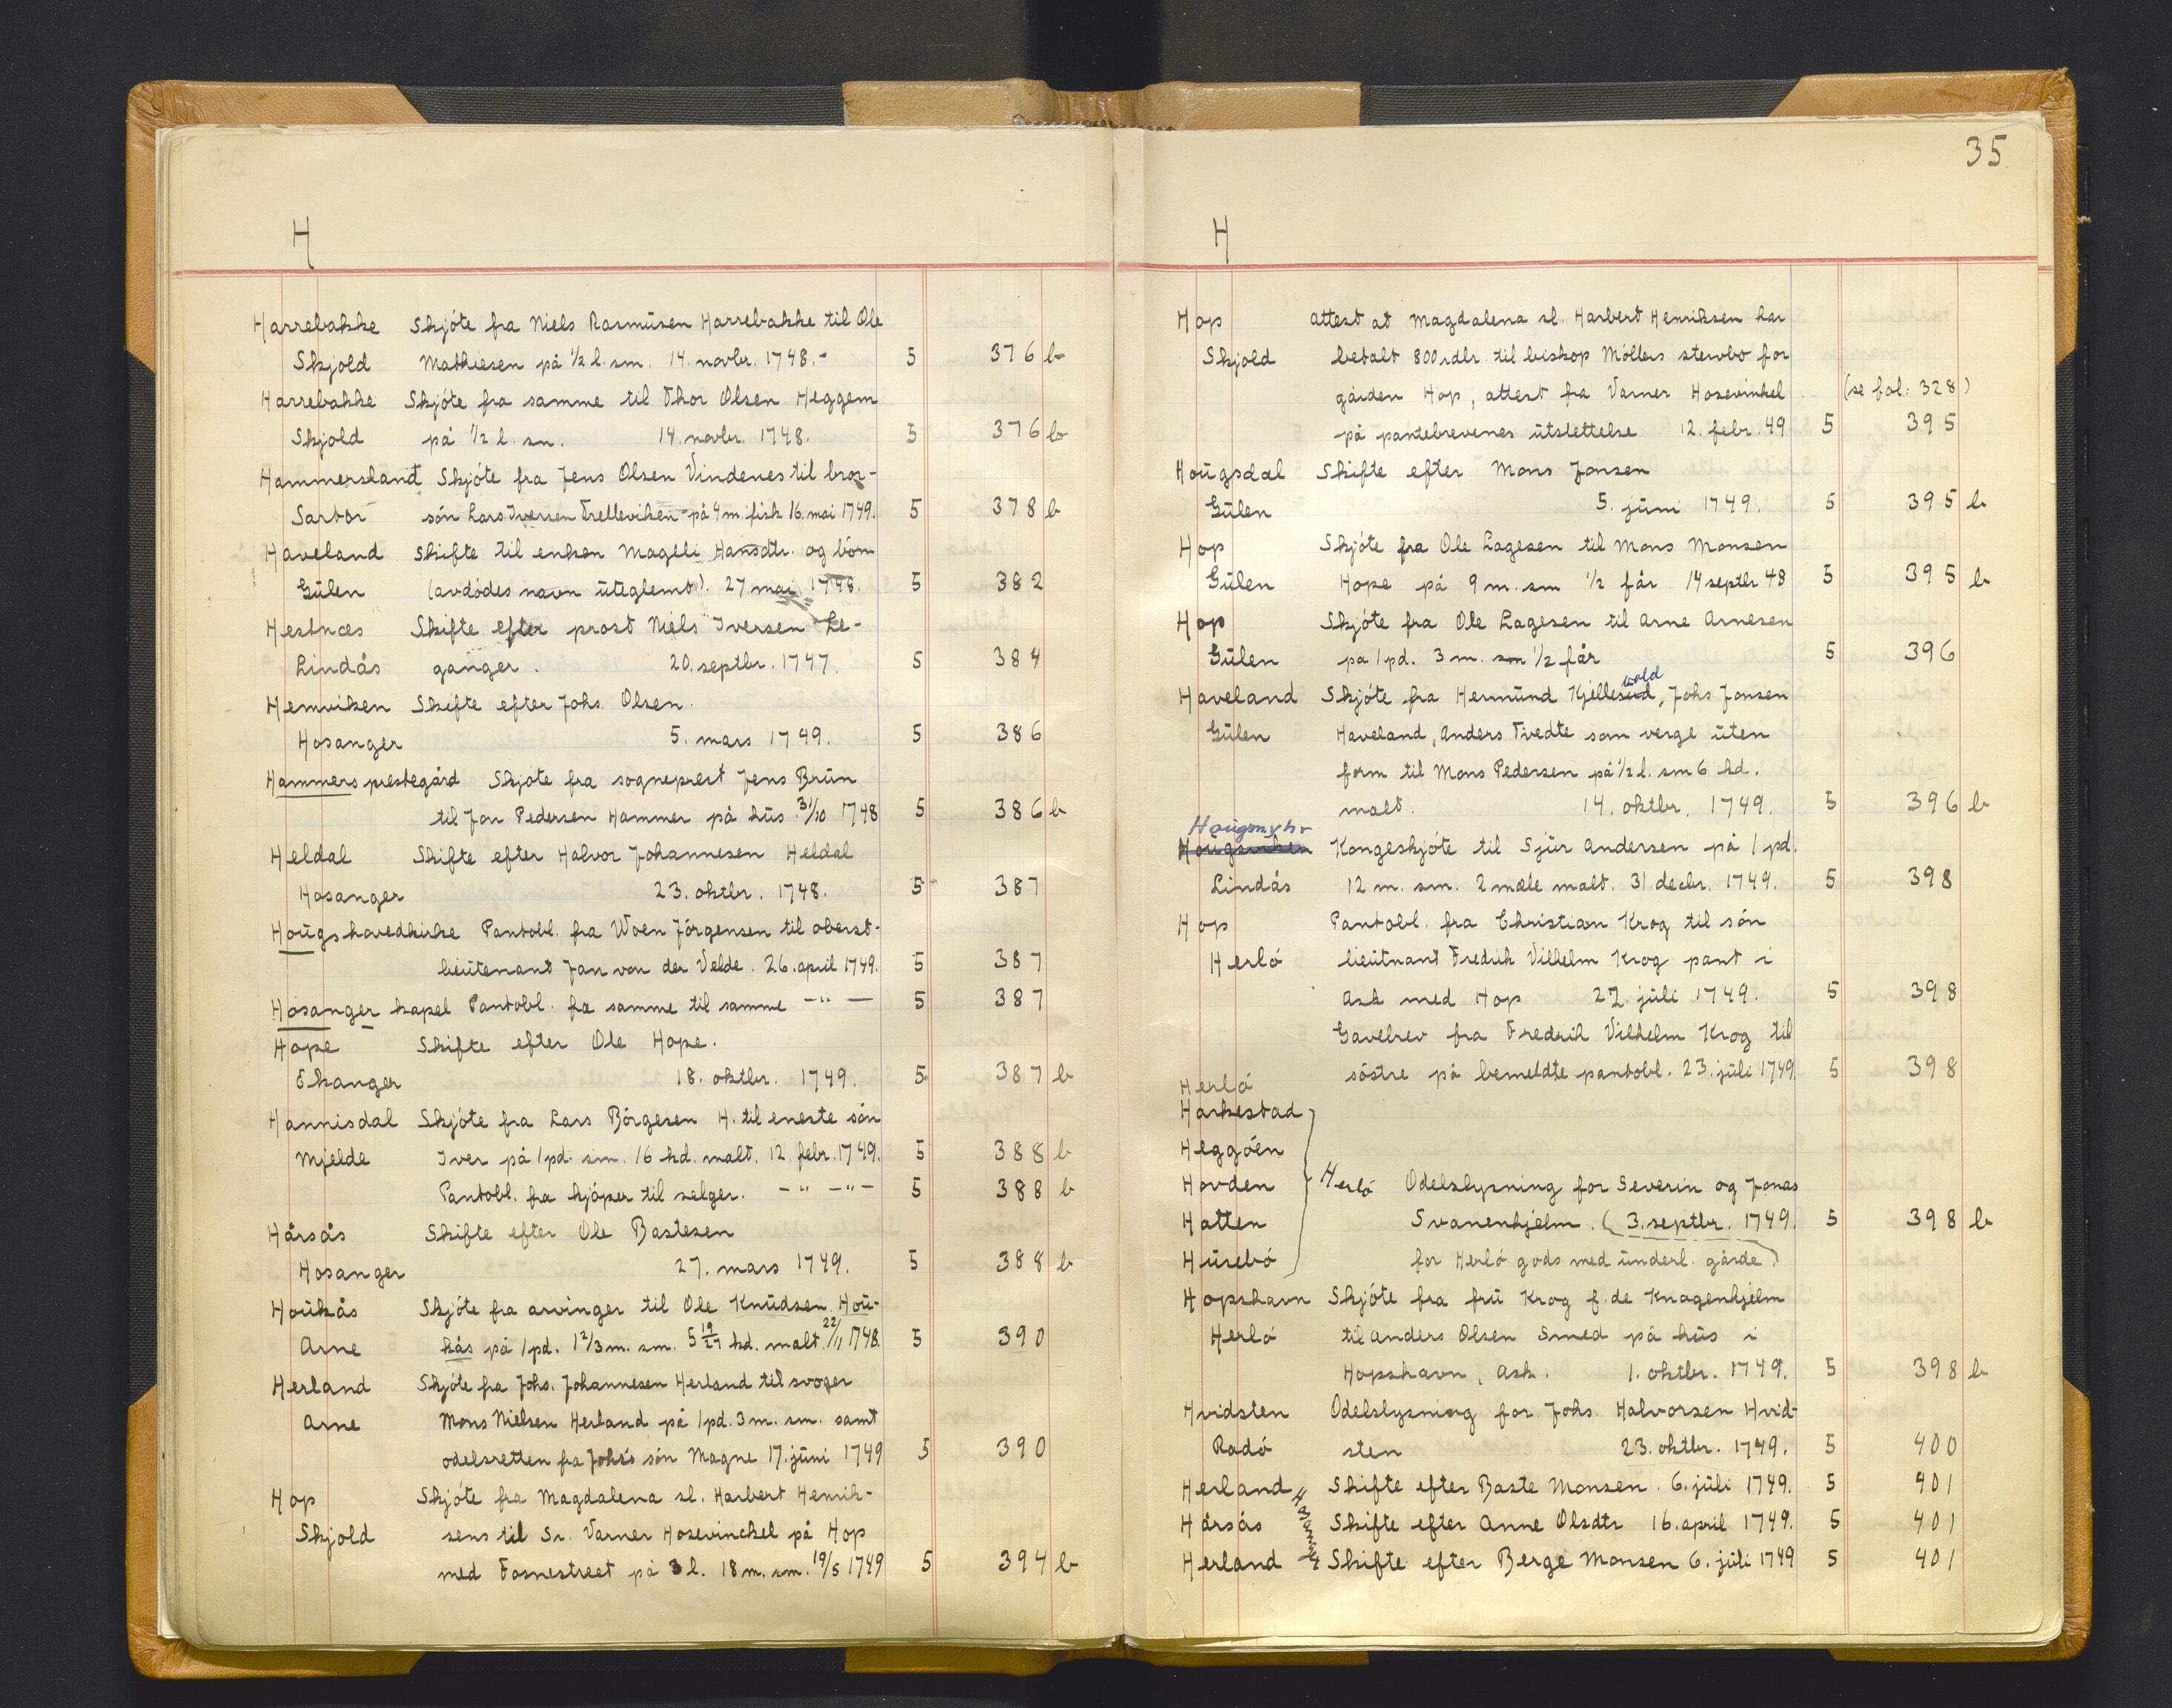 H
Harrebakke Skjóte fra Niels Rasmüsen Harrebakke til Ole
Skjold Mathiesen på 1/2 l. sm. 14. novbr. 1748. - 5 376 b
Harrebakke Skjóte fra samme til Thor Olsen Heggem
Skjold på 1/2 l. sm. 14. novbr. 1748. 5 376 b
Hammersland Skjóte fra Jens Olsen Vindenes til bror-
Sartor són Lars Iversen Trelleviken på 4 m. fisk 16. mai 1749. 5 378 b
Haveland Skifte til enken Mageli Hansdtr. og bórn
Gülen (avdódes navn üteglemt). 27. mai 1748. 5 382
Hestnæs Skifte efter prost Niels Iversen Le-
Lindås ganger. 20. septbr. 1747. 5 384
Hemviken Skifte efter Johs. Olsen.
Hosanger 5. mars 1749. 5 386
Hammers prestegård Skjóte fra sogneprest Jens Brün
til Jon Pedersen Hammer på hüs. 31/10 1748 5 386 b
Heldal Skifte efter Halvor Johannesen Heldal
Hosanger 23. oktbr. 1748. 5 387
Hoügs hovedkirke Pantobl. fra Woen Jórgensen til oberst-
lieütenant Jan von der Velde. 26. april 1749. 5 387
Hosanger kapel Pantobl. fra samme til samme -"- 5 387
Hope Skifte efter Ole Hope.
Ekanger 18. oktbr. 1749. 5 387 b
Hannisdal Skjóte fra Lars Bórgesen H. til eneste són
Mjelde Iver på 1 pd. sm. 16 kd. malt. 12. febr. 1749. 5 388 b
Pantobl. fra kjóper til selger. -"- -"- 5 388 b
Hårsås Skifte efter Ole Bastesen
Hosanger 27. mars 1749. 5 388 b
Hoükås Skjóte fra arvinger til Ole Knüdsen Hoü-
Arne kås på 1 pd. 1 2/3 m. sm. 5 19/27 kd. malt. 22/11 1748. 5 390
Herland Skjóte fra Johs. Johannesen Herland til svoger
Arne Mons Nielsen Herland på 1 pd. 3 m. sm. samt
odelsretten fra Johs's són Magne 17. jüni 1749 5 390
Hop Skjóte fra Magdalena sl. Harbert Henrik-
Skjold sens til Sr. Varner Hosevinckel på Hop
med Fosnestreet på 3 l. 18 m. sm. 19/5 1749 5 394 b
35
H
Hop Attest at Magdalena sl. Harbert Henriksen har
Skjold betalt 800 rdlr. til biskop Móllers stervbo for
gården Hop, attest fra Varner Hosevinkel (se fol: 328)
på pantebrevenes ütslettelse 12. febr. 49 5 395
Hoügsdal Skifte efter Mons Jonsen
Gülen 5. jüni 1749. 5 395 b
Hop Skjóte fra Ole Lagesen til Mons Monsen
Gülen Hope på 9 m. sm 1/2 får. 14 septbr 48 5 395 b
Hop Skjóte fra Ole Lagesen til Arne Arnesen
Gülen på 1 pd. 3 m. sm 1/2 får 5 396
vold
Haveland Skjóte fra Hermünd Kjellesvid, Johs Jonsen
Gülen Haveland, Anders Tvedte som verge üten
form til Mons Pedersen på 1/2 l. sm 6 kd.
malt. 14. oktbr. 1749. 5 396 b
Hoügsmyhr
Hoügsviken Kongeskjóte til Sjür Andersen på 1 pd.
Lindås 12 m. sm. 2 mæle malt. 31. decbr. 1749. 5 398
Hop Pantobl. fra Christian Krog til són
Herló lieütnant Fredrik Vilhelm Krog pant i
Ask med Hop 27. jüli 1749. 5 398
Gavebrev fra Fredrik Vilhelm Krog til
sóstre på bemeldte pantobl. 23. jüli 1749. 5 398
Herló
Harkestad
Heggóen
Hovden Herló Odelslysning for Severin og Jonas
Hatten Svanenhjelm. (3. septbr. 1749. 5 398 b
Hüsebó for Herló gods med ünderl. gårde)
Hopshavn Skjóte fra frü Krog f. de Knagenhjelm
Herló til Anders Olsen Smed på hüs i
Hopshavn, Ask. 1. oktbr. 1749. 5 398 b
Hvidsten Odelslysning for Johs. Halvorsen Hvid-
Radó sten 23. oktbr. 1749. 5 400
Herland Skifte efter Baste Monsen. 6. jüli 1749. 5 401
Hårsås Hosanger Skifte efter Anne Olsdtr 16. april 1749. 5 401
Herland Skifte efter Berge Monsen 6. jüli 1749 5 401